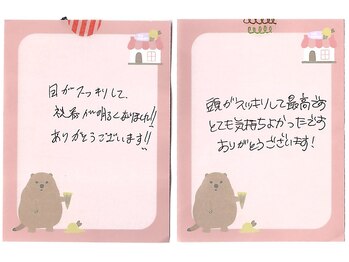 目がスッキリして、
視界が明るくなりました!!
ありがとうございます!!
頭がスッキリして最高です
とても気持ちよかったです
ありがとうございます!